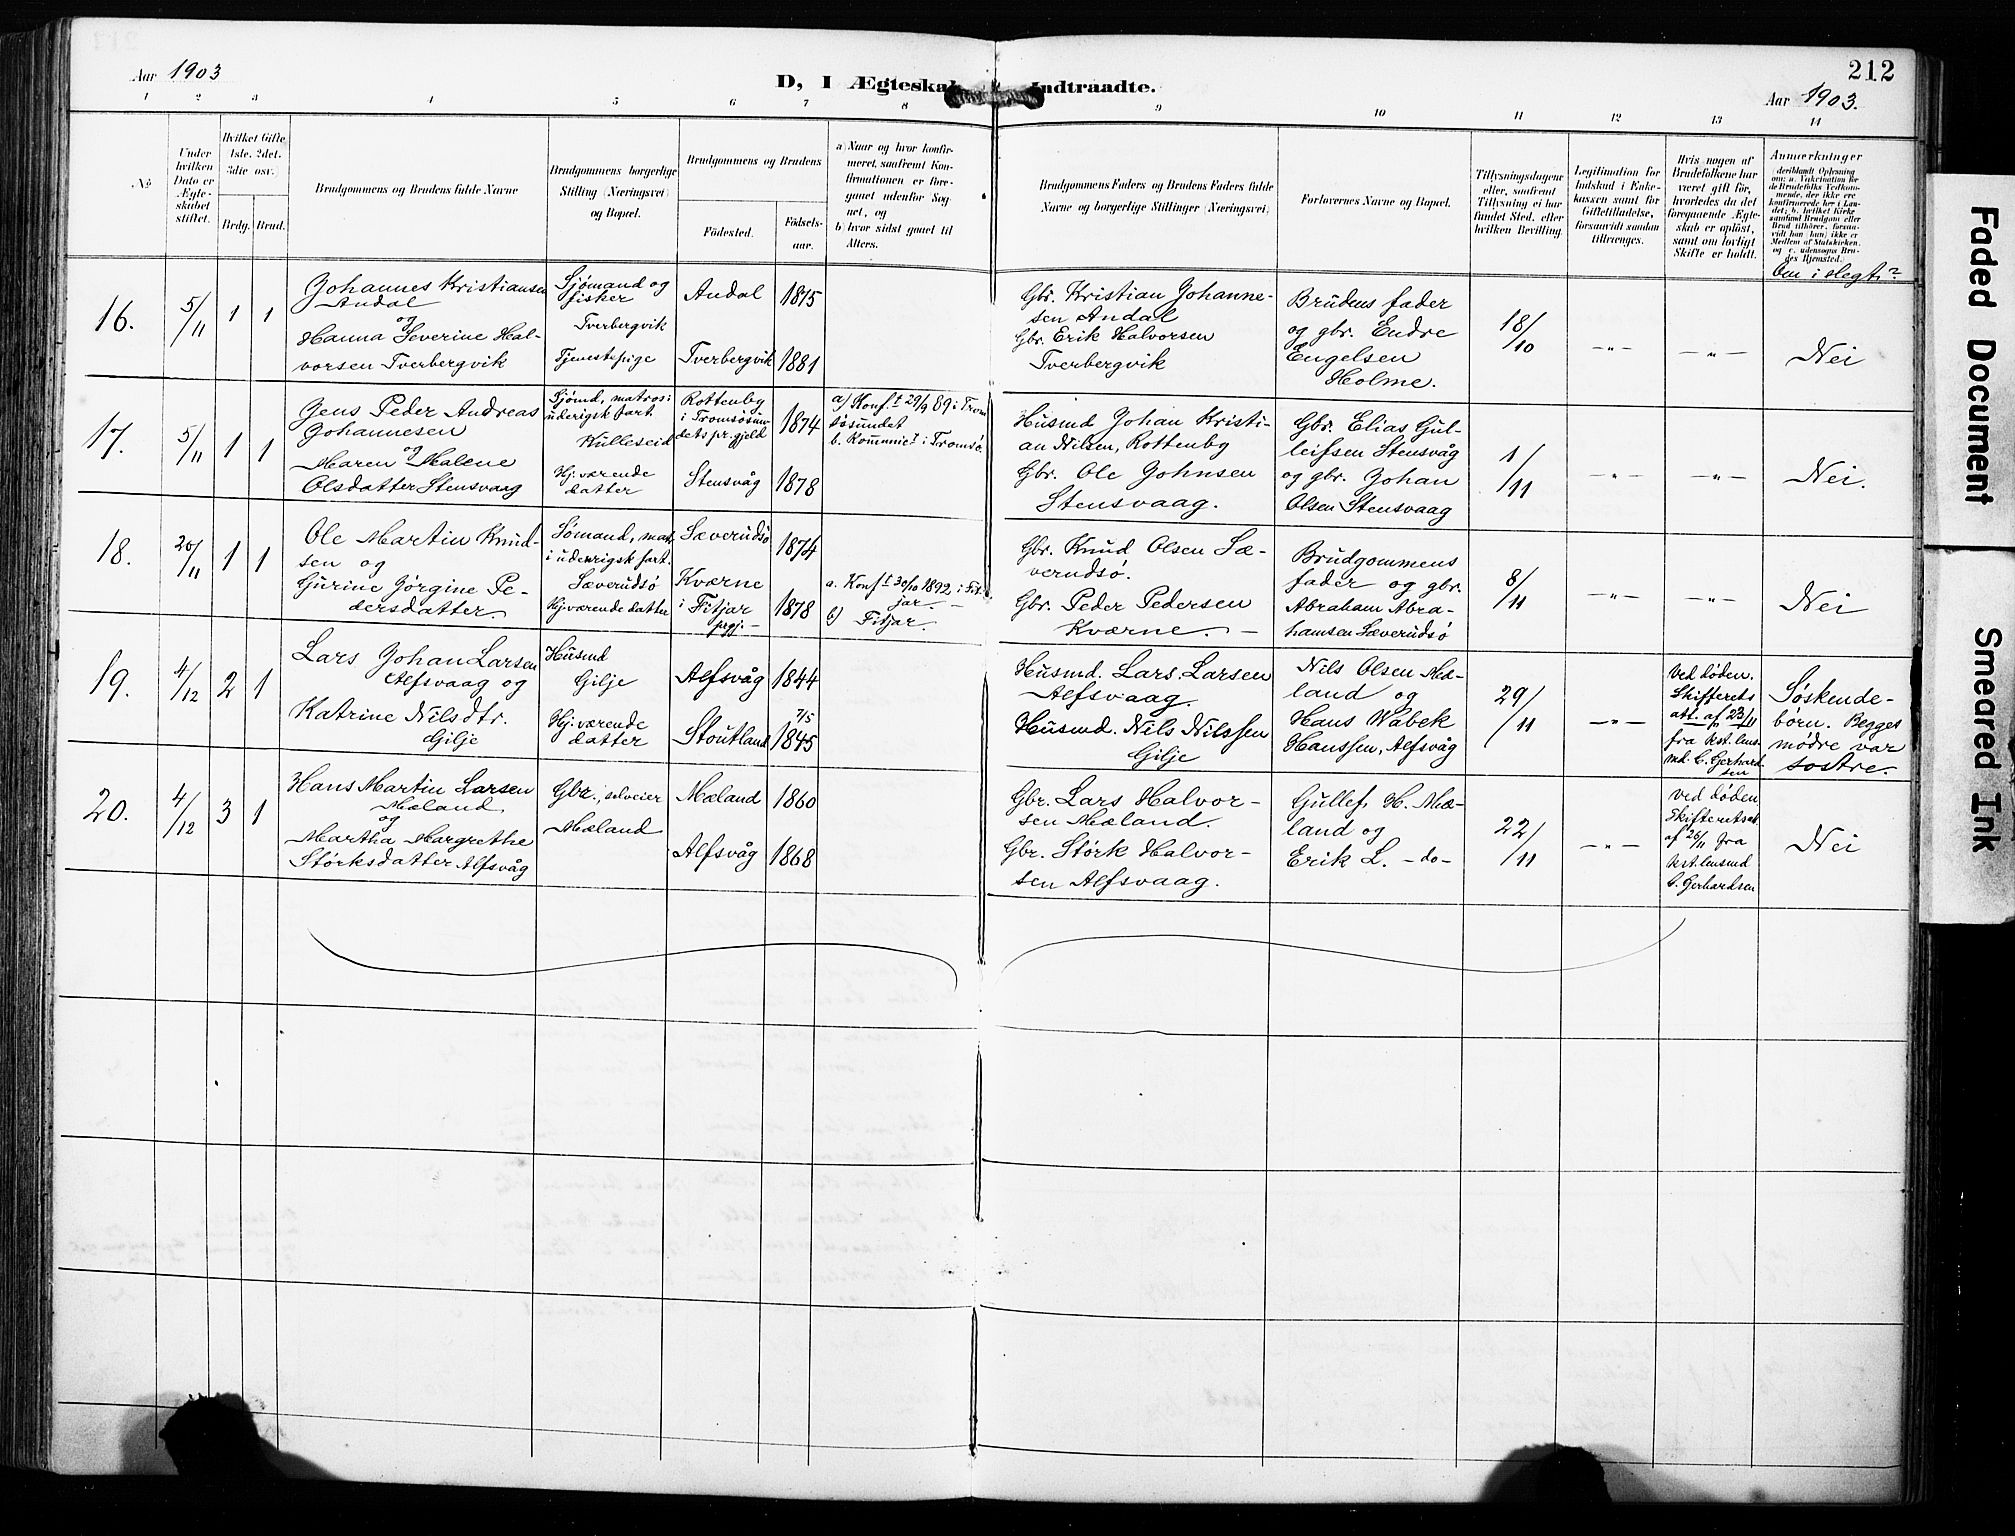 Aar 1903
D, I Ægteskab Indtraadte.
212
Aar 1903.
1 2 3 4 5 6 7 8 9 10 11 12 13 14
No
Under
hvilken
Dato er
Ægte-
skabet
stiftet.
Hvilket Gifte,
1ste. 2det.
3die osv.
Brdg. Brud.
Brudgommens og Brudens fulde Navne
Brudgommens borgerlige
Stilling (Næringsvei)
og Bopæl.
Brudgommens og Brudens
Födested.
Födsels-
aar.
a) Naar og hvor konfir-
meret, saafremt Kon-
firmationen er fore-
gaaet udenfor Sog-
net, og
b) hvor sidst gaaet til
Alters.
Brudgommens Faders og Brudens Faders fulde
Navne og borgerlige Stillinger (Næringsvei)
Forlovernes Navne og Bopæl.
Tillysningsdagene
eller, saafremt
Tillysning ei har
fundet Sted, efter
hvilken Bevilling.
Legitimation for
Indskud i Enke-
kassen samt for
Giftetilladelse,
forsaavidt saadan
tiltrænges.
Hvis nogen af
Brudefolkene har
været gift før,
hvorledes da det
foregaaende Ægte-
skab er opløst,
samt om lovligt
Skifte er holdt.
Anmærkninger
Om i slegt?
16.
5/11
1 1
Johannes Kristiansen
Andal
og
Hanna Severine Hal-
vorsen Tverbergvik
Sjømand og
fisker
Tverbergvik
Tjenestepige
Andal
Tverbergvik
1875
1881
Gbr. Kristian Johanne-
sen Andal
Gbr. Erik Halvorsen
Tverbergvik
Brudens fader
og gbr. Endre
Engelsen
Holme.
18/10
—"—
—"—
Nei
17.
5/11
1 1
Jens Peder Andreas
Johannesen
og
Maren Malene
Olsdatter Stensvaag
Sjømd, matros i
uderigsk fart
Kulleseid
Hj. værende
datter
Rottenby
i Tromsøsun-
dets pr.gjeld
Stensvåg
1874
1878
a) Konf.t 29/9 89 i Trom
søsundet
b. Kommunic.t i Tromsø.
Husmd Johan Kristi-
an Nilsen, Rottenby
Gbr. Ole Johnsen
Stensvaag.
Gbr. Elias Gul-
leifsen Stensvåg
og gbr. Johan
Olsen Stensvaag
1/11
—"—
—"—
Nei.
18.
20/11
1 1
Ole Martin Knud-
sen og
Gurine Jørgine Pe-
dersdatter.
Sømand, mat.
i udenrigsk fart.
Sæverudsö
Hj. værende datter
Sæverudsö
Kværne
i Fitjar
prgj. —
1874
1878
a. Konf.t 30/10 1892 i Fit-
jar. —
b) Fitjar.
Gbr. Knud Olsen Sæ-
verudsø.
Gbr. Peder Pedersen
Kværne. —
Brudgommens
fader og gbr.
Abraham Abra-
hamsen Sæverudsö
8/11
—"—
—"—
Nei
19.
4/12
2 1
Lars Johan Larsen
Alfsvaag og
Katrine Nilsdtr.
Gilje
Husmd
Gilje
Hj. værende
datter
Alfsvåg
Stoutland
1844
7/5
1845
Husmd. Lars Larsen
Alfsvaag.
Husmd. Nils Nilssen
Gilje
Nils Olsen Mæ-
land og
Hans Wabek
Hanssen, Alfsvåg
29/11
—"—
Ved døden.
Skifterets
att. af 23/11
fra kst. lens-
md. C. Gerhard-
sen
Søskende-
børn. Begges
mødre var
søstre.
20.
4/12
3 1
Hans Martin Larsen
Mæland
og
Martha Margrethe
Størksdatter Alfsvåg
Gbr., selveier
Mæland
Mæland
Alfsvåg
1860
1868
Gbr. Lars Halvor-
sen Mæland.
Gbr. Størk Halvor-
sen Alfsvaag.
Gullef H. Mæ-
land og
Erik L. —do—
22/11
—"—
Ved døden
Skifteretsat.
af 26/11 fra
kst. lensmd
C. Gerhardsen
Nei
Faded Document
Smeared Ink